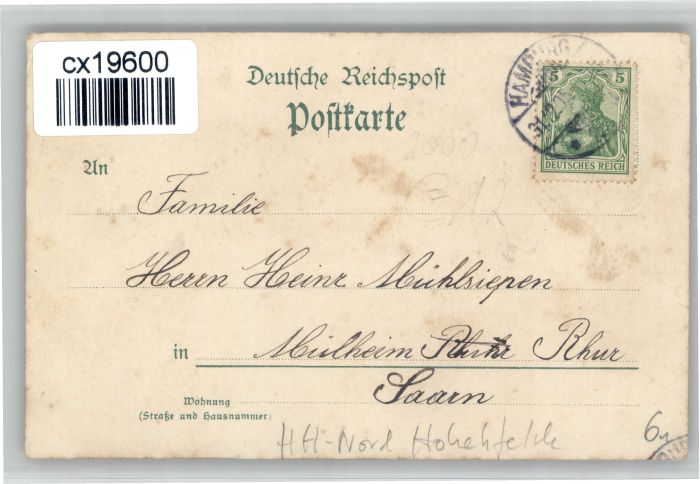 cx19600
Deutsche Reichspost
Postkarte
HAMBURG
5 5
DEUTSCHES REICH
An
Familie
Herrn Heinr. Mühlsiepen
in Mülheim Rhur
Saarn
Wohnung
(Straße und Hausnummer)
HH-Nord Hohenfelde